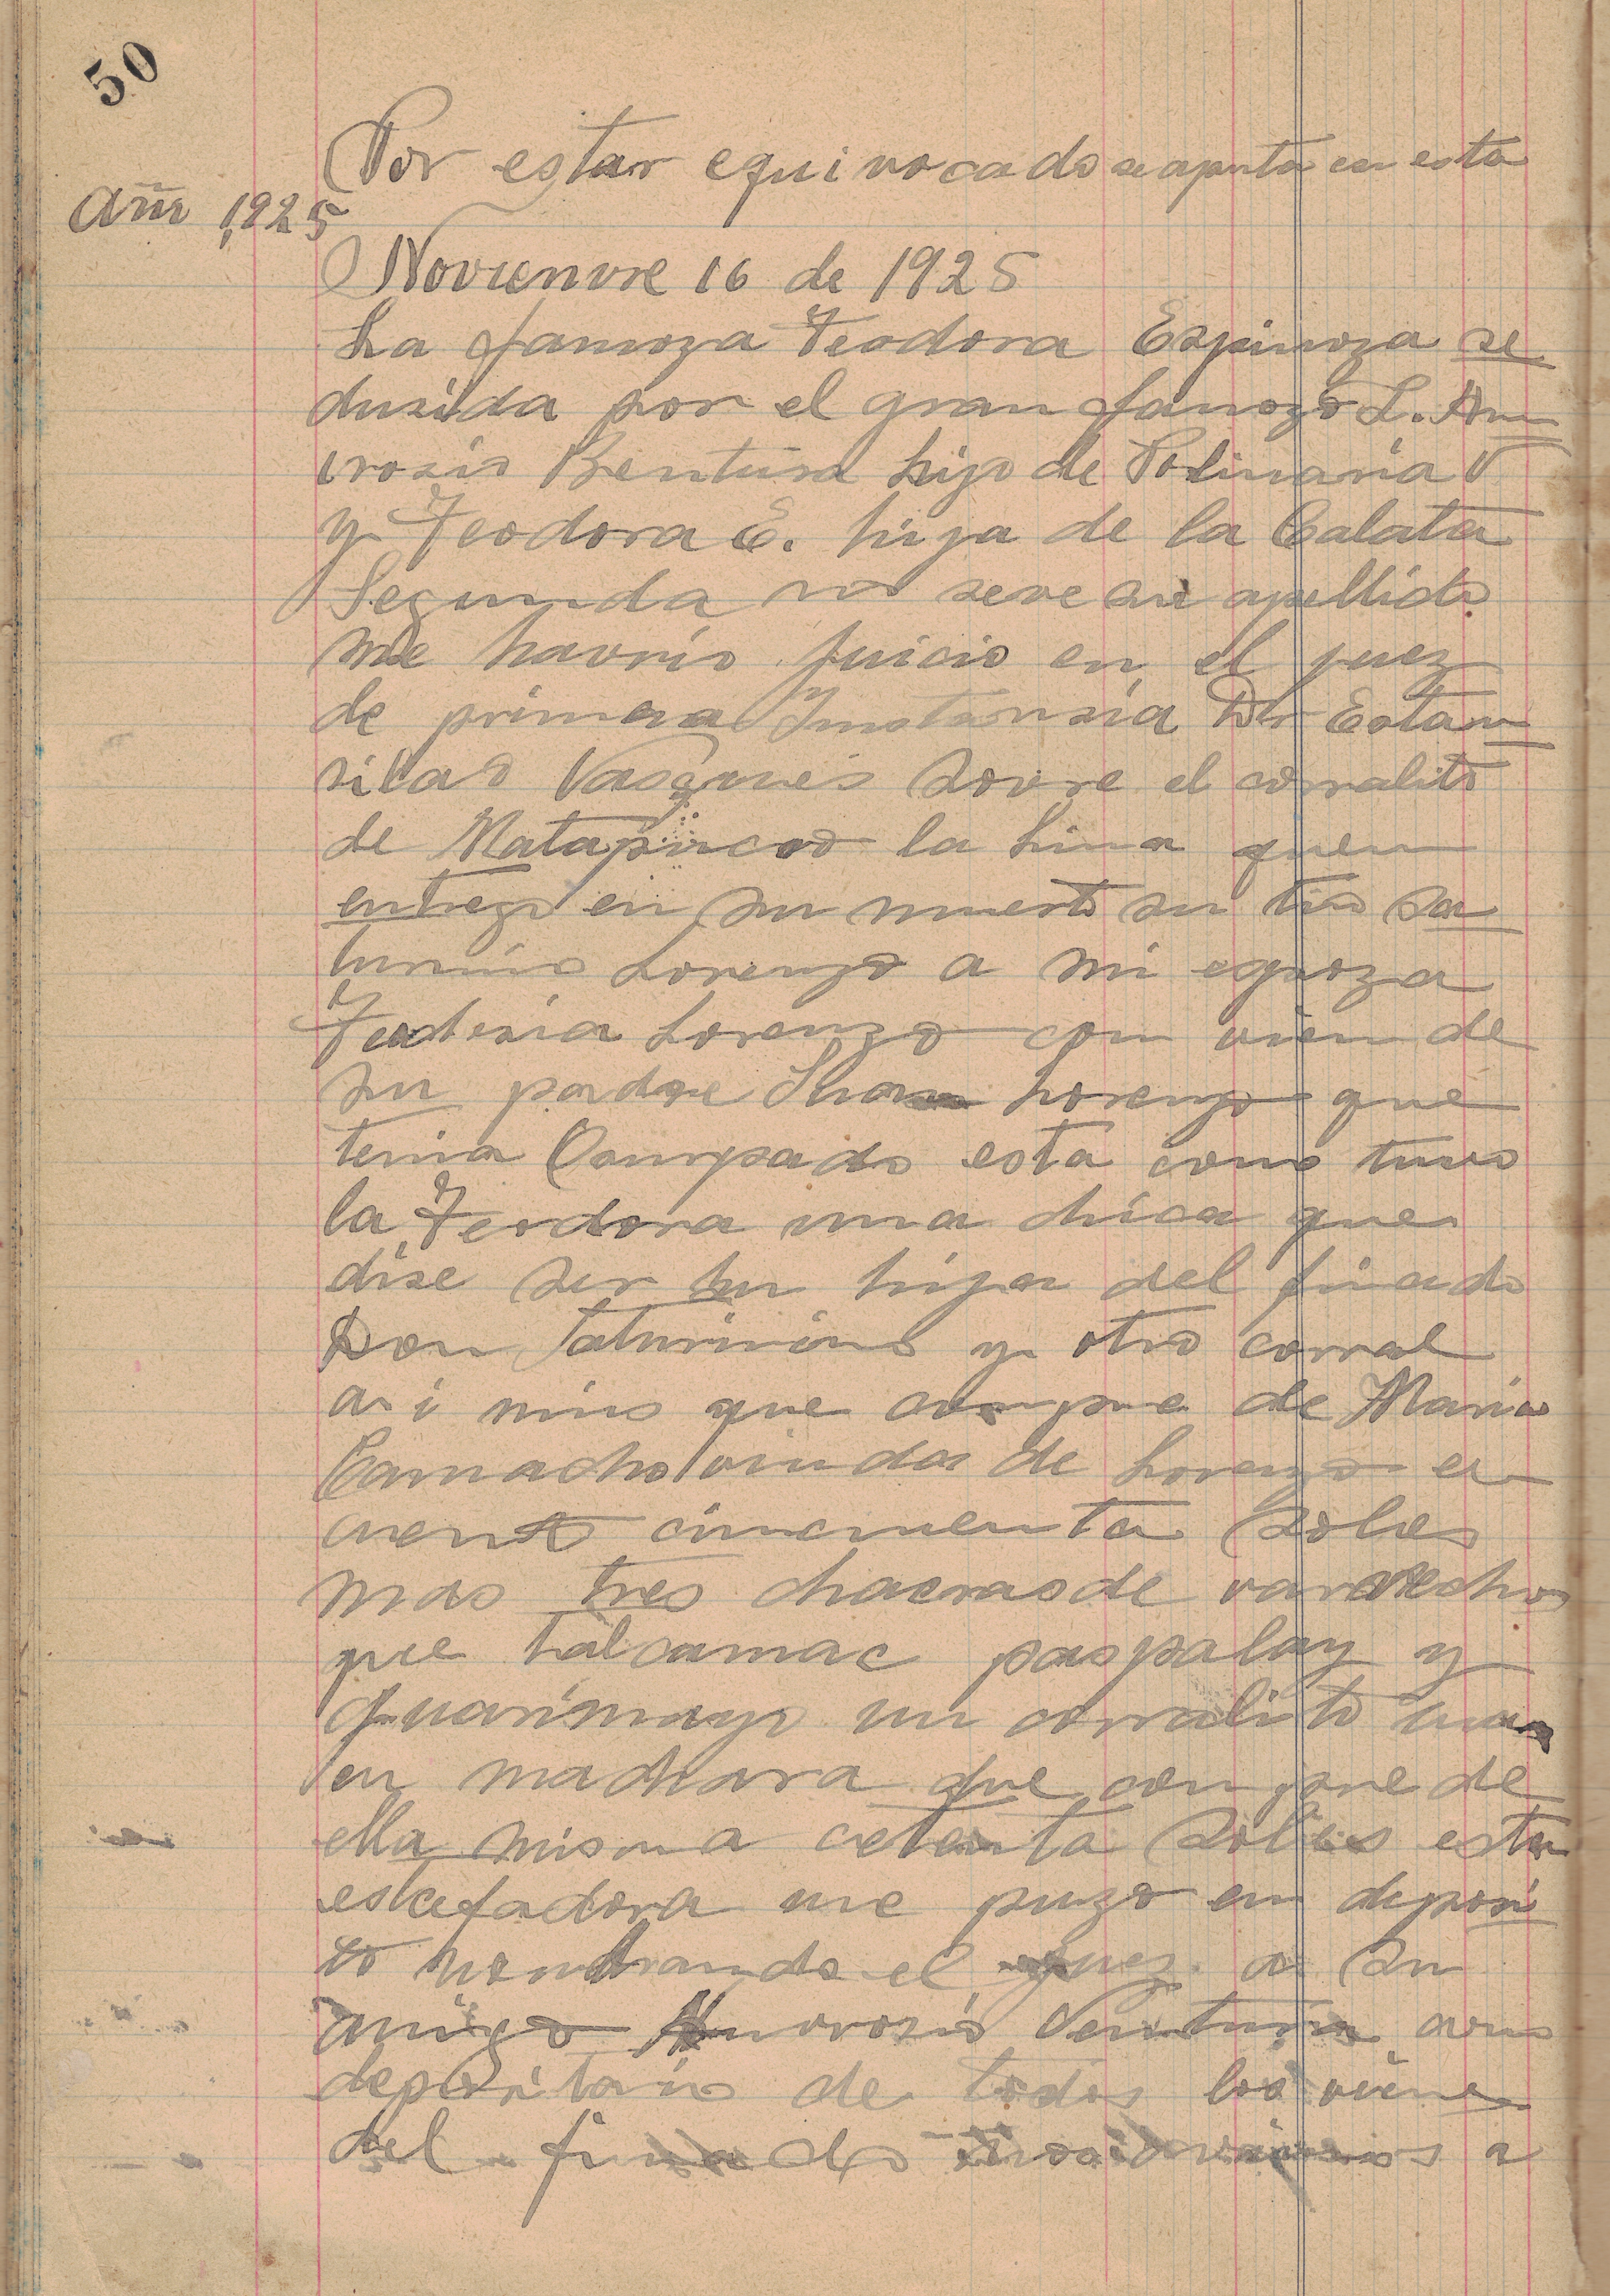 50
Por estar equivocado se apunta en esta
Año 1925
Novienvre 16 de 1925
La famoza Teodora Espinoza se
dusida por el gran famozo L. Am
vrosio Bentura hijo de Polinaria V
y Teodora E. hija de la Calata
Segunda no seve su apellido
me havrio juicio en el juez
de primera Instansia Dr Estan
silao Vasques sovre el corralito
de Matapircos la Lima quen
entrego en su muerto su tio Sa
turnino Lorenzo a mi espoza
Teodosia Lorenzo con vien de
su padre Lorenzo que
tenia Compado esta como tuvo
la Teodora una chica que
dise ser su hija del finado
Don Saturnino y otro corral
a i mio que compre de Maria
Camacho viuda de Lorenzo en
ciento cincuenta Soles
mas tres chacras de varvecho
que Lalcamac paspalay y
Guarimayo un corralito
en machara que compre de
ella misma cetenta Soles esta
estafadora me puzo en deposi
to nombrando el juez a su
amigo Amvrosio Ventura como
depositario de todos los vienes
del finado a